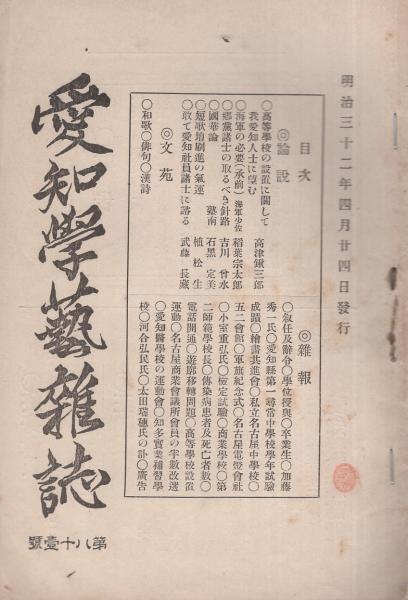 明治三十二年四月廿四日發行
目次
◎論説
○高等學校の設置に關して
我愛知人士に望む 高津鍬三郎
○海軍の必要(承前) 海軍少佐 稻葉宗太郎
○鄕黨諸士の取るべき針路 吉川曾水
○國華論 墓南 石黑定美
○短歌培刷進の氣運 植松生
○敢て愛知社員諸士に諮る 武藤長藏
◎文苑
○和歌○俳句○漢詩
◎雜報
○叙任及辭令○學位授與○卒業生○加藤
秀一氏○愛知縣第一尋常中學校學年試驗
成蹟○繪畫共進會○私立名古屋中學校○
五二會館○軍旗紀念式○名古屋電燈會社
○小室重弘氏○檢定試驗○商業學校○第
二師範學校長○傳染病患者及死亡者數○
電話開通○遊廓移轉問題○高等學校設置
運動○名古屋商業會議所會員の半數改選
○愛知醫學校の運動會○知多實業補習學
校○河合弘民氏○太田瑞穗氏の訃○廣告
愛知學藝雜誌
第八十壹號